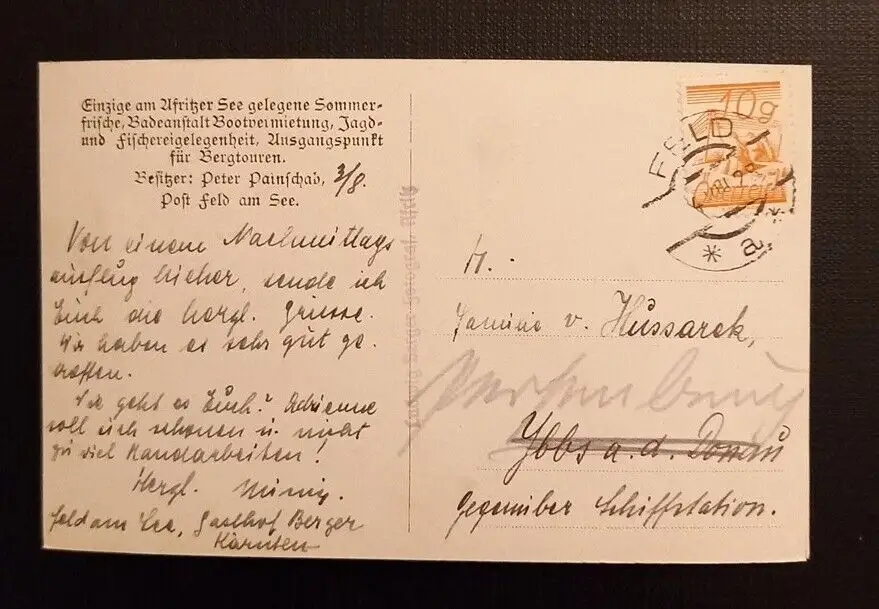 Einzige am Afritzer See gelegene Sommer-
frische, Badeanstalt Bootvermietung, Jagd-
und Fischereigelegenheit, Ausgangspunkt
für Bergtouren.
Besitzer: Peter Painschab, 3/8.
Post Feld am See.
Von einem Nachmittags
ausflug hieher, sende ich
Euch die herzl. Grüsse.
Wir haben es sehr gut ge-
troffen.
Wie geht es Euch? Adrienne
soll sich schonen u. nicht
zu viel Handarbeiten!
Herzl.
Feld am See, Gasthof Berger
Kärnten
10g
Österreich
FELD
* a *
H.
Familie v. Hussarek,
Persenbeug
Ybbs a. d. Donau
gegenüber Schiffstation.